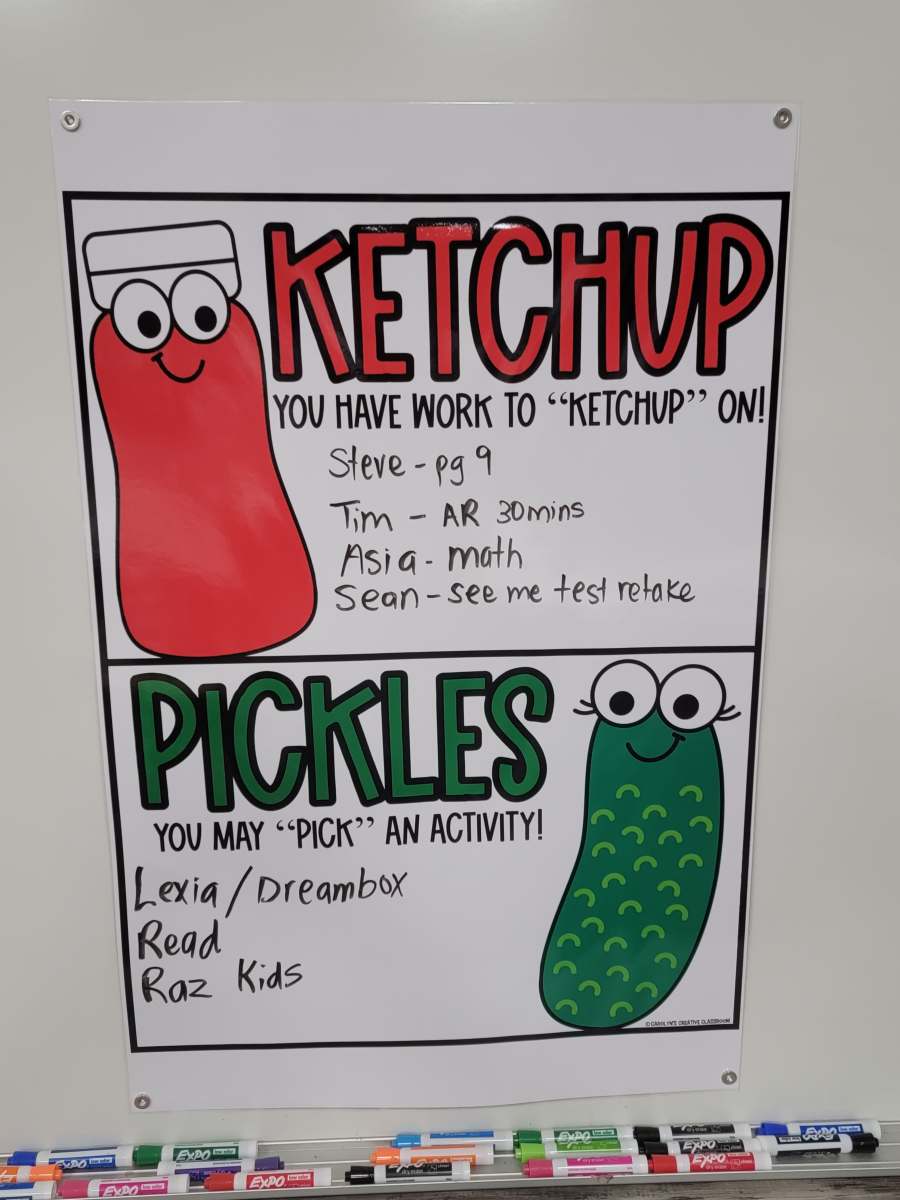 KETCHUP
YOU HAVE WORK TO “KETCHUP” ON!
Steve - pg 9
Tim - AR 30mins
Asia - math
Sean - see me test retake
PICKLES
YOU MAY “PICK” AN ACTIVITY!
Lexia / Dreambox
Read
Raz Kids
© CAROLYN'S CREATIVE CLASSROOM
EXPO
EXPO
EXPO
EXPO
EXPO
EXPO
EXPO